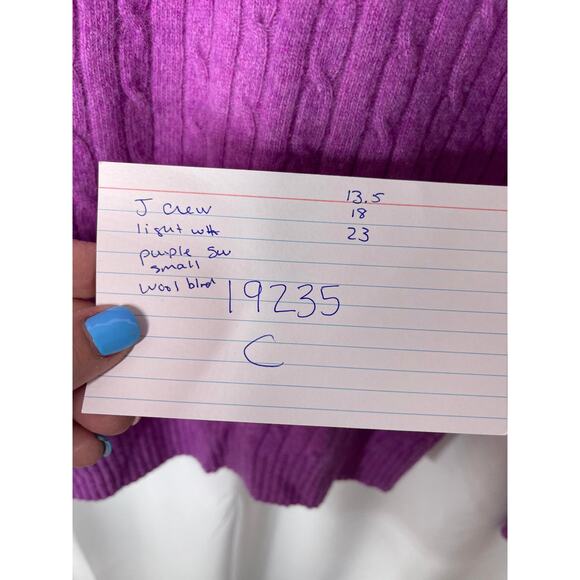 13.5
J Crew 18
light wtr 23
purple sw
small
wool blnd
19235
C